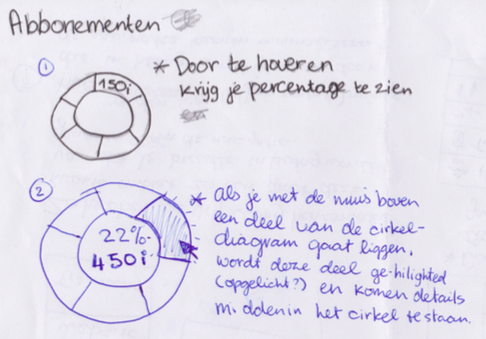 Abbonementen
1
150i
* Door te hoveren
krijg je percentage te zien
2
22%
450i
* als je met de muis boven
een deel van de cirkel-
diagram gaat liggen,
wordt deze deel ge-hilighted
(opgelicht?) en komen details
middenin het cirkel te staan.